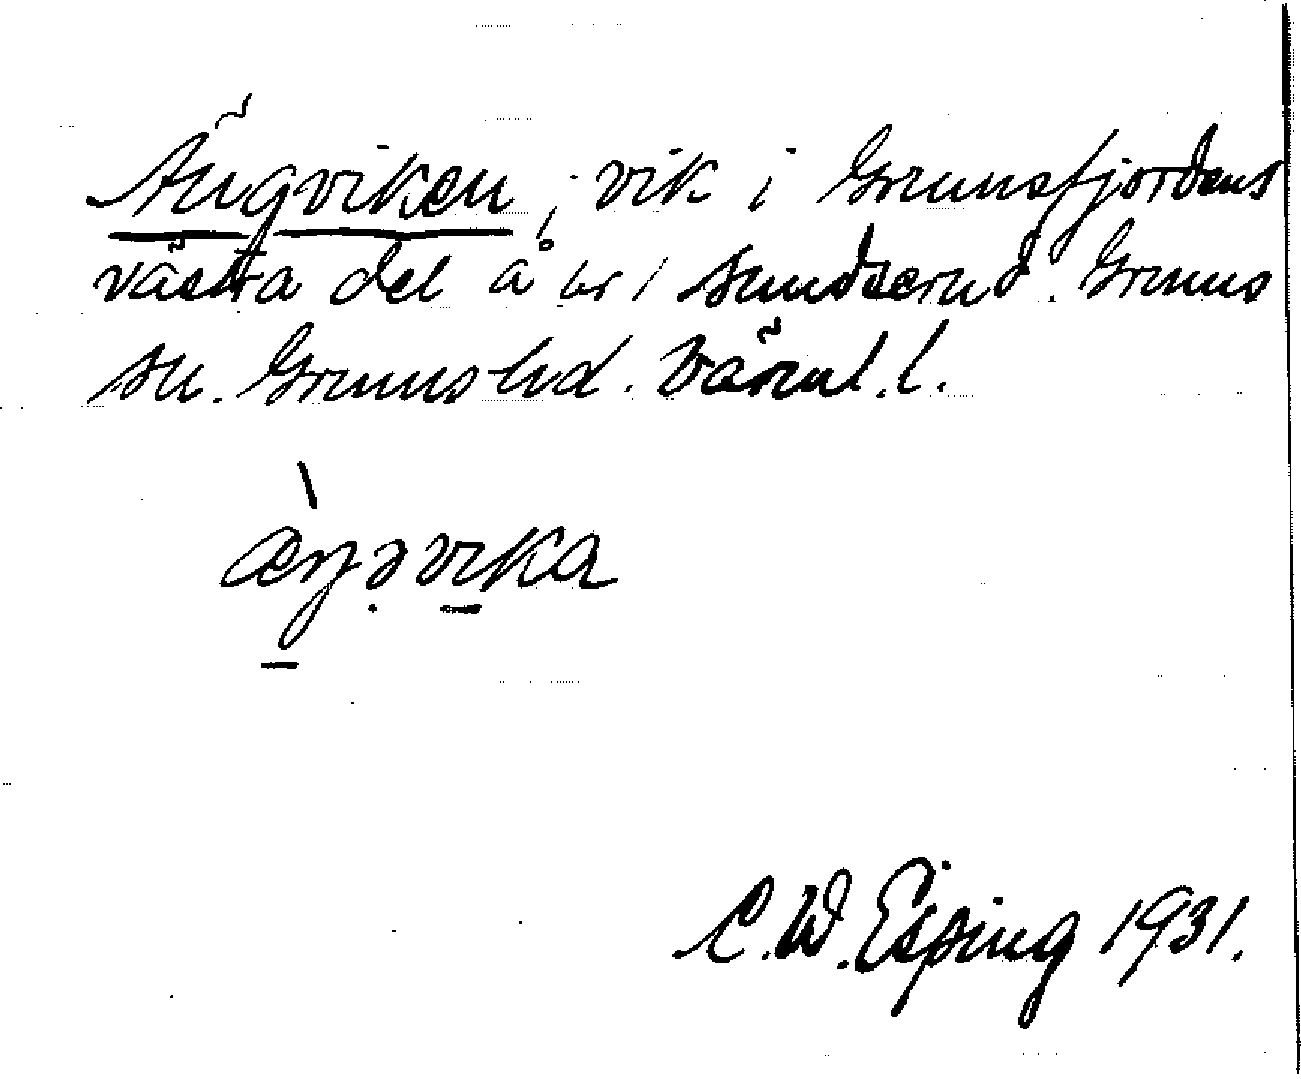 Ängviken, vik i Grumsfjordens
västra del å br 1 Sundserud. Grums
sn. Grums hd. Värml. l.
æŋəvika
C. W. Esping 1931.